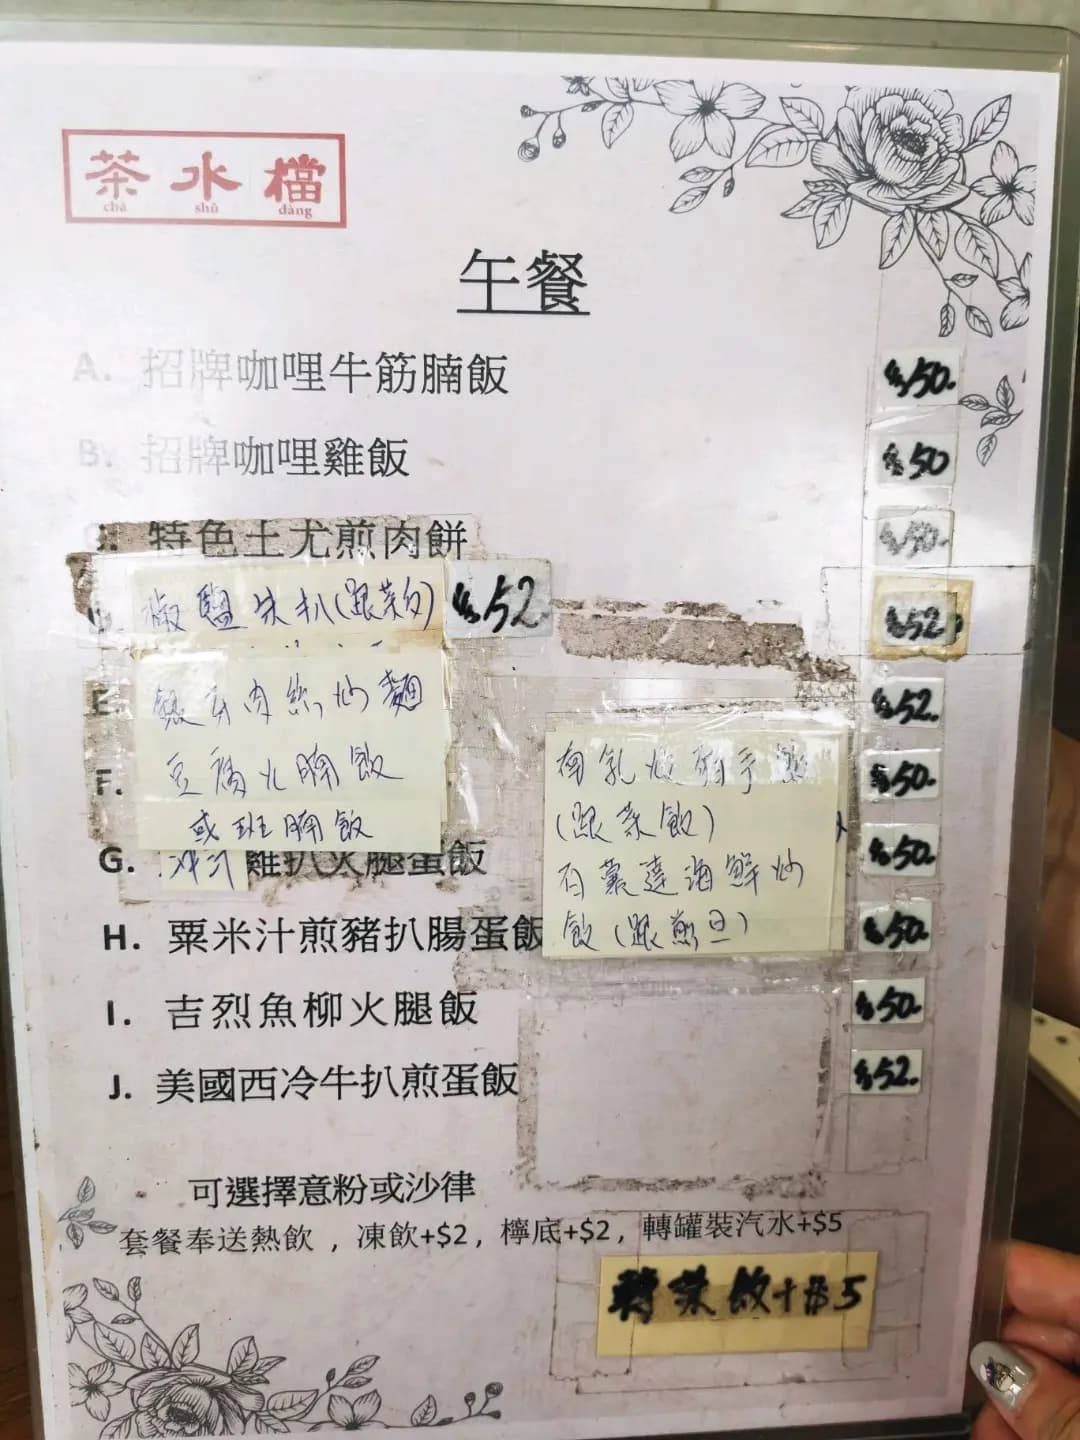 茶水檔
chá shǔ dàng
午餐
A. 招牌咖哩牛筋腩飯 $50.
B. 招牌咖哩雞飯 $50
特色土尤煎肉餅 $50.
椒鹽 扒(跟菜 ) $52
$52
E. 銀牙肉絲炒麵 $52.
F. 豆腐火腩飯 $50.
或班腩飯
南乳 豬手
(跟菜飯)
石 海鮮炒
飯(跟煎旦)
G. 洋汁雞扒火腿蛋飯 $50.
H. 粟米汁煎豬扒腸蛋飯 $50.
I. 吉烈魚柳火腿飯 $50.
J. 美國西冷牛扒煎蛋飯 $52.
可選擇意粉或沙律
套餐奉送熱飲 , 凍飲+$2, 檸底+$2, 轉罐裝汽水+$5
轉 飯+$5